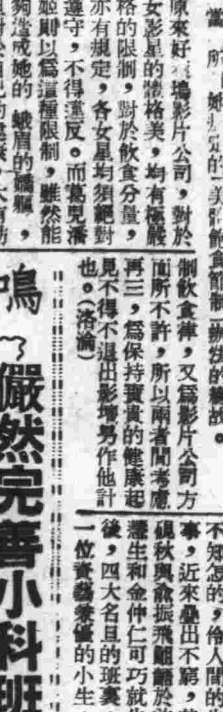 原來好塢影片公司,對於
女影星的體格美,均有極嚴
格的限制,對於飲食分量,
亦有規定,各女星均須絕對
遵守,不得違反。而葛兒潘
姬則以爲這種限制,雖然能
夠造成她的蛾眉的嬌軀,
制飲食律,又爲影片公司方
面所不許,所以兩者間考慮
再三,爲保持寶貴的健康起
見不得不退出影壇另作他計
也。(洛瀹)
不知怎的,倆人間的
事,近來疊出不窮,
硯秋與俞振飛齟齬於
慧生和金仲仁可巧就
後,四大名旦的班裏
一位資藝兼優的小生
鳴~儼然完善小科班